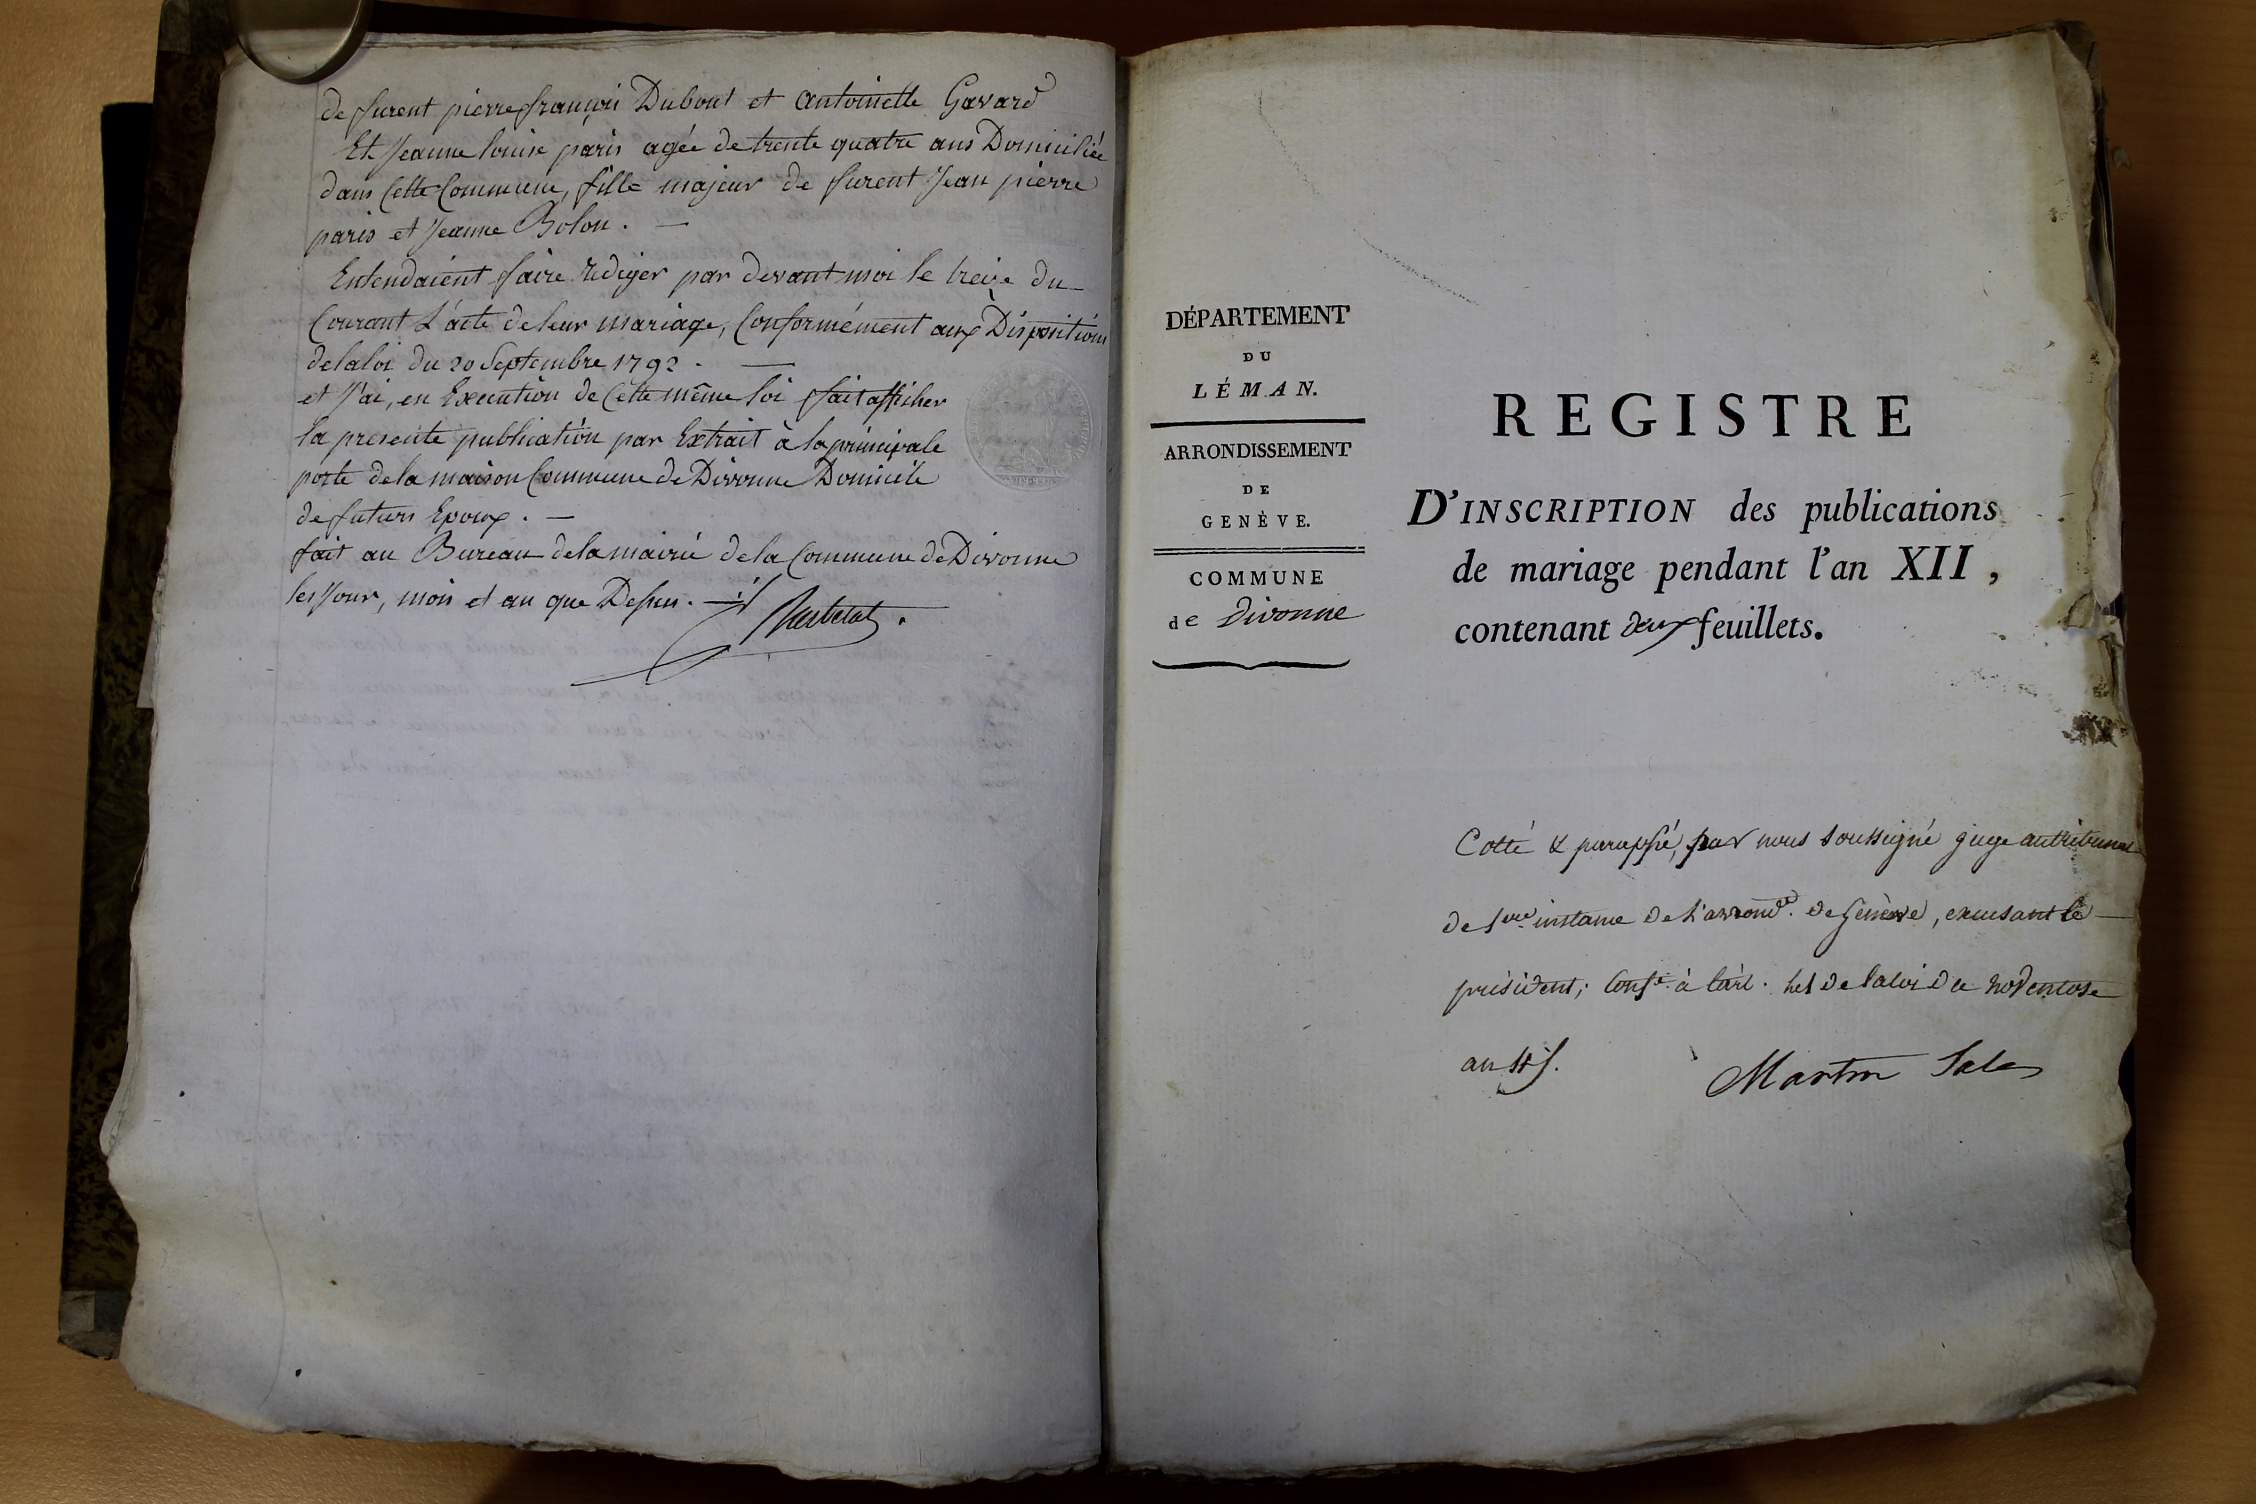 de furent pierre françois Dubout et antoinette Gavard
Et Jeanne louise paris agée de trente quatre ans Domiciliée
dans Cette Commune, fille majeur de furent Jean pierre
paris et Jeanne Bolon. —
Entendaient faire rediger par devant moi le treize du
Courant L'acte de leur mariage, Conformément aux Dispositions
de la loi du 20 Septembre 1792. —
et J'ai, en Execution de Cette même loi fait afficher
la presente publication par Extrait à la principale
porte de la maison Commune de Divonne Domicile
de futurs Epoux. —
fait au Bureau de la mairie de la Commune de Divonne
les Jour, mois et an que Dessus. —
DÉPARTEMENT
DU
LÉMAN.
ARRONDISSEMENT
DE
GENÈVE.
COMMUNE
de Divonne
REGISTRE
D'INSCRIPTION des publications
de mariage pendant l'an XII,
contenant deux feuillets.
Cotté & paraphé, par nous soussigné juge au tribunal
de 1ere instance de l'arrond.t de Genève, excusant le
président; Conf.t à l'art. de la loi du ventose
an
Martin Sales